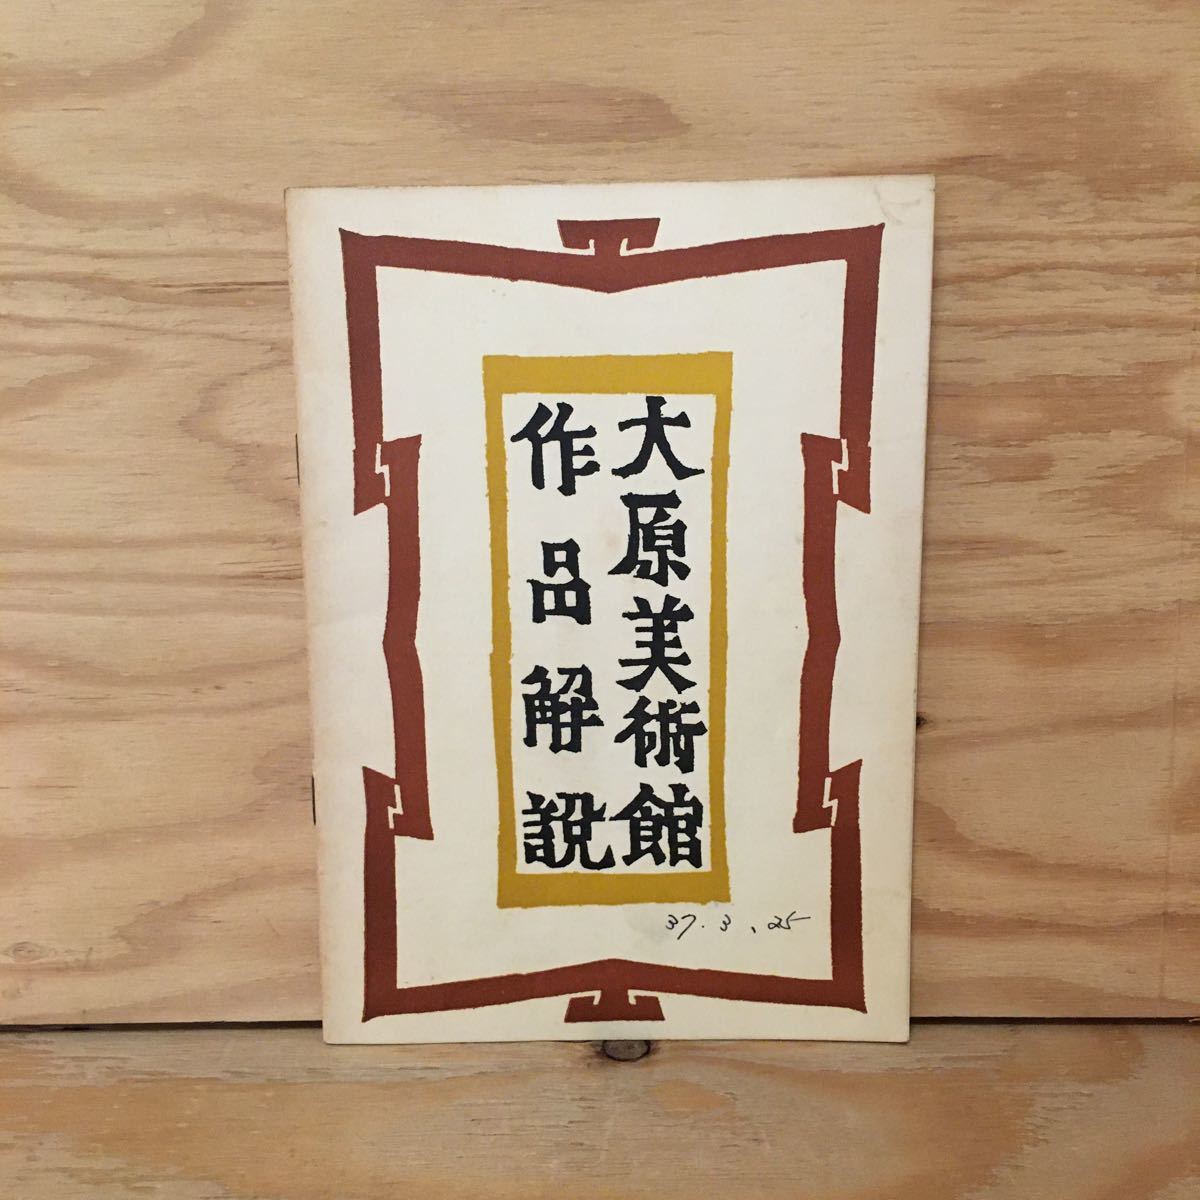 大原美術館
作品解説
37.3.25